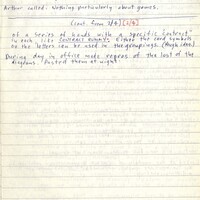 Arthur called. Nothing particularly about games.
(cont. from 3/4) [2/4]
of a series of hands with a specific "contract"
in each, like CONTRACT RUMMY. Either the card symbols
or the letters can be used in the groupings. (Rough idea)
During day in office made repros of the last of the
diagrams. Pasted them at night